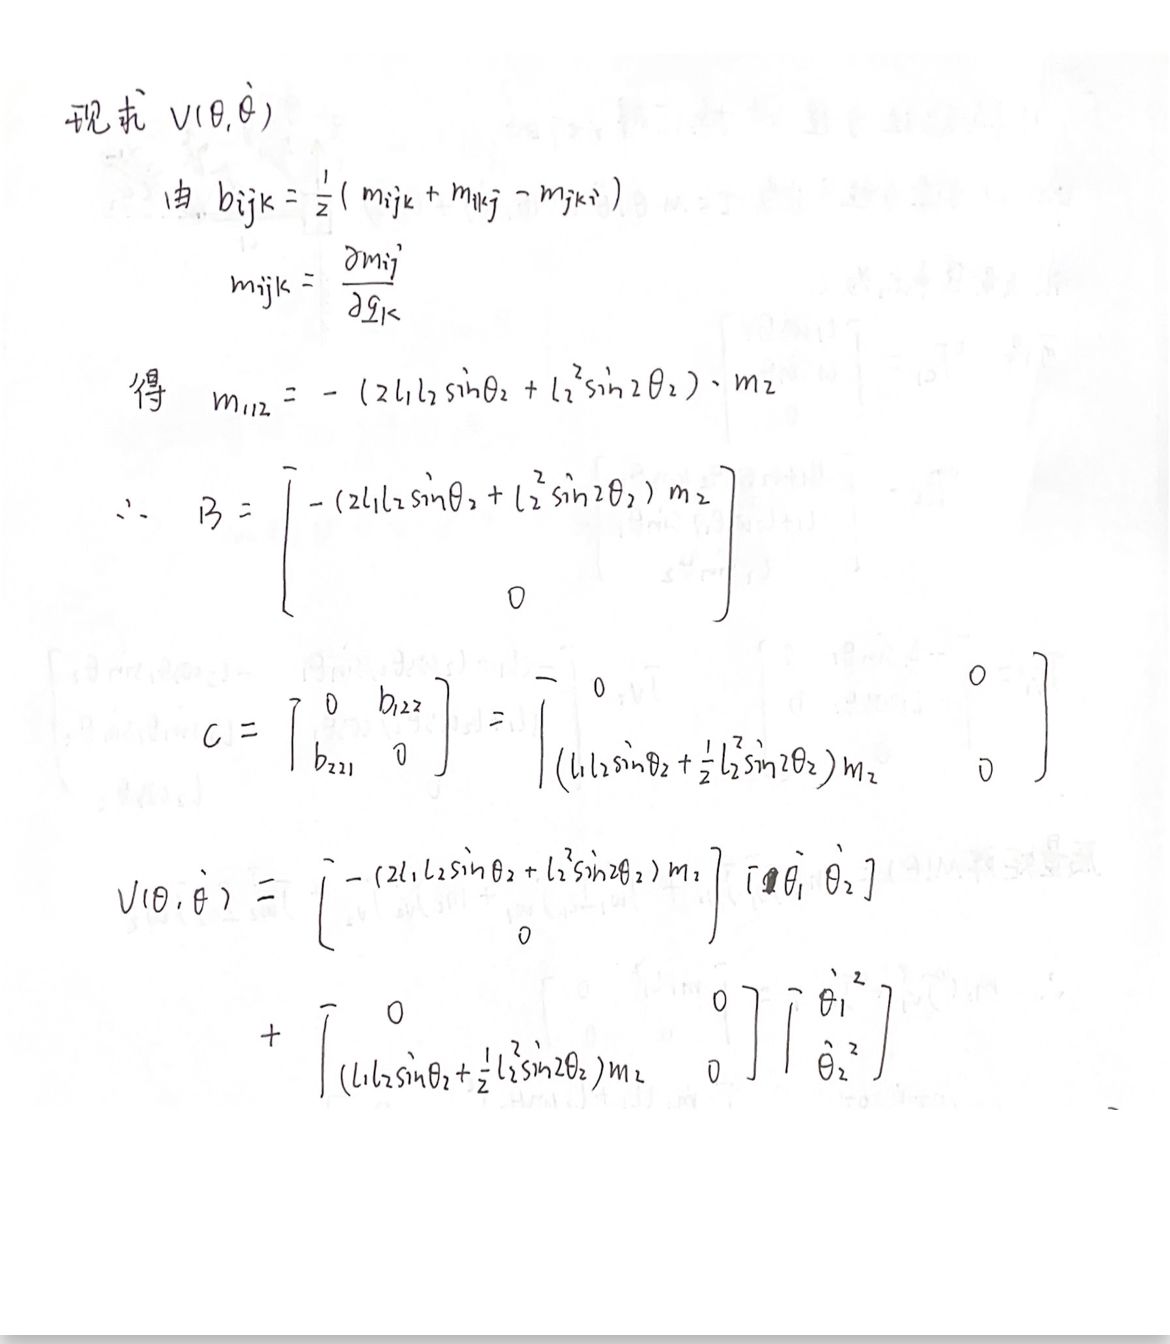 现求 V(θ,θ̇)
由 bijk = 1/2 ( mijk + mikj - mjki )
mijk = ∂mij / ∂qk
得 m112 = - (2l1l2 sinθ2 + l2² sin2θ2) · m2
∴ B = [ - (2l1l2 sinθ2 + l2² sin2θ2) m2
0 ]
C = [ 0 b122 = [ 0 0
b221 0 ] (l1l2 sinθ2 + 1/2 l2² sin2θ2) m2 0 ]
V(θ,θ̇) = [ - (2l1l2 sinθ2 + l2² sin2θ2) m2 ] [θ̇1 θ̇2]
0
+ [ 0 0 ] [ θ̇1²
(l1l2 sinθ2 + 1/2 l2² sin2θ2) m2 0 θ̇2² ]